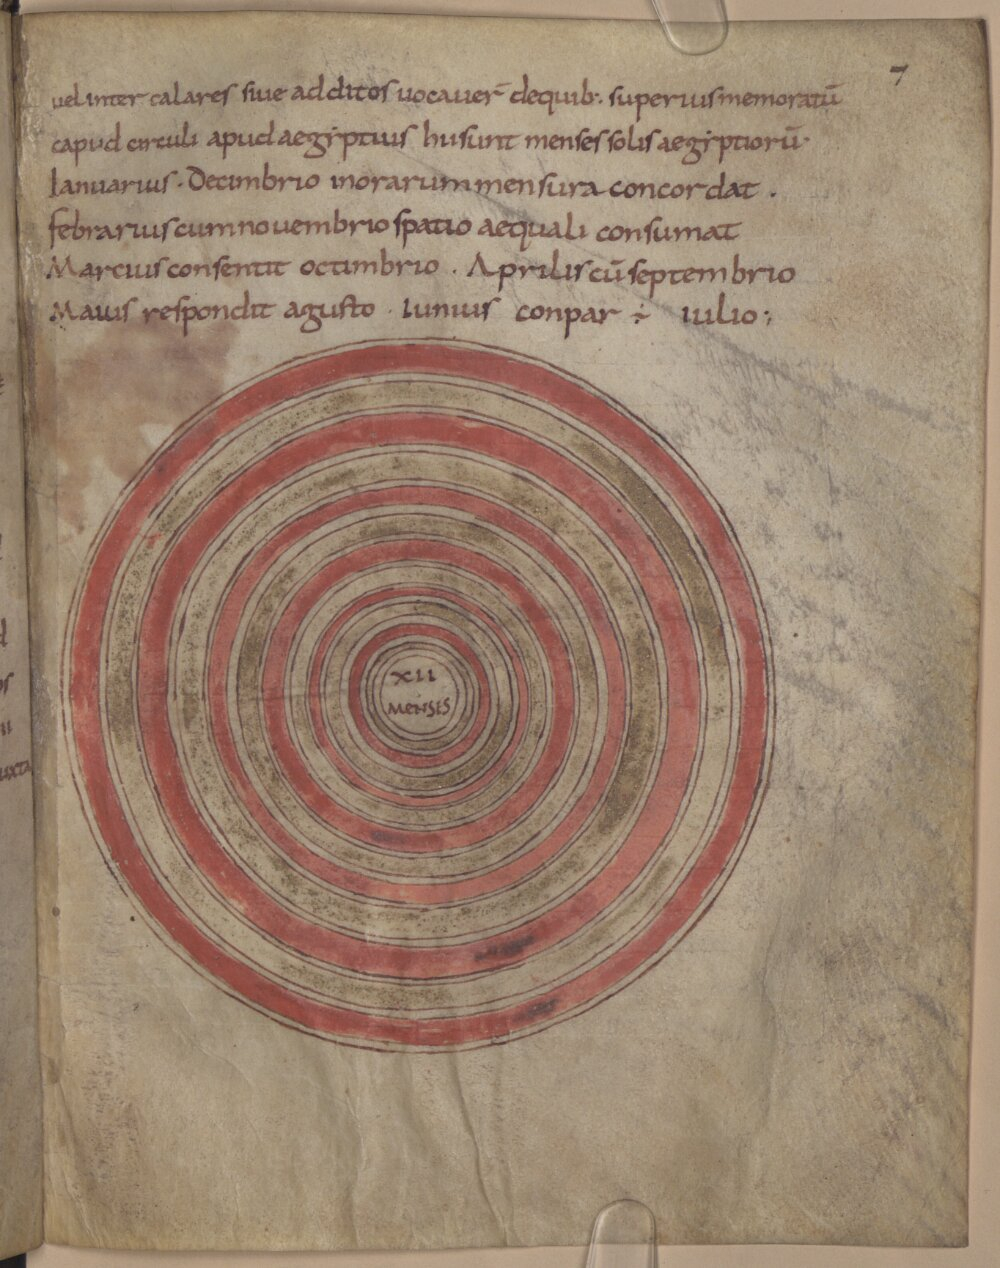 7
uel inter calares siue additos uocauer̄ dequib· superius memoratū
capud circuli apud aegẏptius hii sunt menses solis aegẏptiorū·
Ianuarius · Decimbrio in orarum mensura concordat ·
febrarius cum nouembrio spatio aequali consumat
Marcius consentit octimbrio · Aprilis cū septembrio
Maius respondit agusto · Iunius conpar ÷ iulio :,
XII
MENSIS